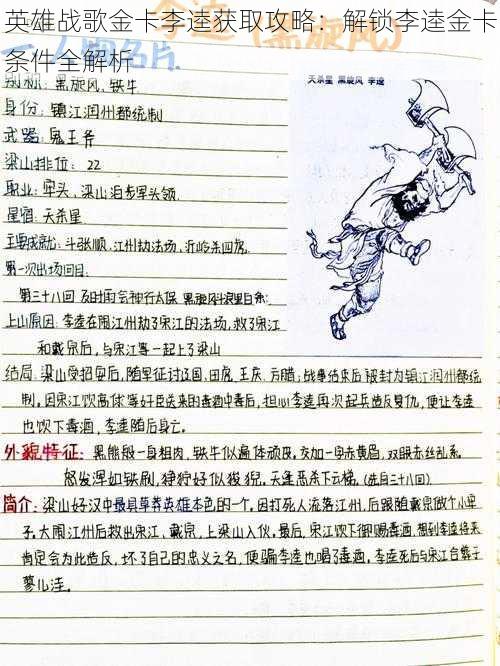 英雄战歌金卡李逵获取攻略：解锁李逵金卡
条件全解析
人物名片
李逵（黑旋风）
别称：黑旋风、铁牛
天杀星 黑旋风 李逵
身份：镇江润州都统制
武器：鬼王斧
梁山排位：22
职业：牢头、梁山泊步军头领
星宿：天杀星
主要成就：斗张顺、江州劫法场、沂岭杀四虎
第一次出场回目：
第三十八回 及时雨会神行太保 黑旋风斗浪里白条
上山原因：李逵在闹江州劫了宋江的法场，救了宋江
和戴宗后，与宋江等一起上了梁山
结局：梁山受招安后，随军征讨辽国、田虎、王庆、方腊；战事结束后被封为镇江润州都统
制，因宋江饮高俅等奸臣送来的毒酒中毒后，担心李逵再次起兵造反复仇，便让李逵
也饮下毒酒，李逵随后身亡。
外貌特征：黑熊般一身粗肉，铁牛似遍体顽皮，交加一字赤黄眉，双眼赤丝乱系。
怒发浑如铁刷，狰狞好似狻猊，天蓬恶杀下云梯。（选自三十八回）
简介：梁山好汉中最具草莽英雄本色的一个。因打死人流落江州，后跟随戴宗做个小牢
子，大闹江州后救出宋江、戴宗，上梁山入伙。最后，宋江饮下御赐毒酒，想到李逵将来
肯定会为此造反，坏了自己的忠义之名，便骗李逵也喝了毒酒，李逵死后与宋江合葬于
蓼儿洼。